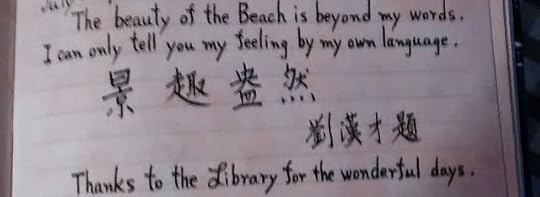 July
The beauty of the Beach is beyond my words.
I can only tell you my feeling by my own language.
景趣盎然
劉漢才題
Thanks to the Library for the wonderful days.